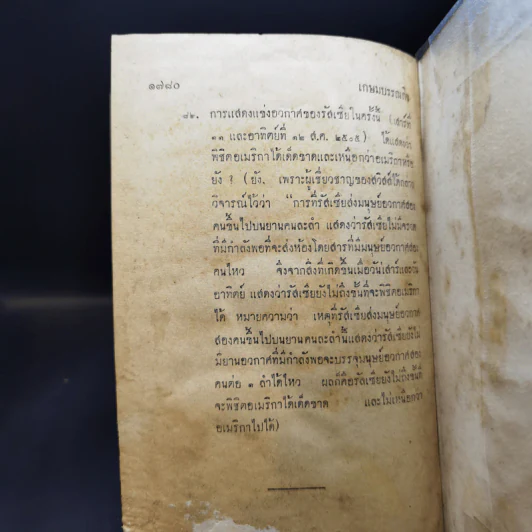 ๑๗๘๐ เกษมบรรณกิจ
๘๖. การแสดงแข่งอวกาศของรัสเซียในครั้งนี้ (เสาร์ที่
๑๑ และอาทิตย์ที่ ๑๒ ส.ค. ๒๕๐๕) ได้แสดงว่า
พิชิตอเมริกาได้เด็ดขาดและเหนือกว่าอเมริกาหรือ
ยัง ? (ยัง. เพราะผู้เชี่ยวชาญของสวิสส์ได้กล่าว
วิจารณ์ไว้ว่า "การที่รัสเซียส่งมนุษย์อวกาศสอง
คนขึ้นไปบนยานคนละลำ แสดงว่ารัสเซียไม่มีจรวด
ที่มีกำลังพอที่จะส่งห้องโดยสารที่มีมนุษย์อวกาศสอง
คนไหว จึงจากสิ่งที่เกิดขึ้นเมื่อวันเสาร์และวัน
อาทิตย์ แสดงว่ารัสเซียยังไม่ถึงขั้นที่จะพิชิตอเมริกา
ได้ หมายความว่า เหตุที่รัสเซียส่งมนุษย์อวกาศ
สองคนขึ้นไปบนยานคนละลำนั้นแสดงว่ารัสเซียยังไม่
มียานอวกาศที่มีกำลังพอจะบรรจุมนุษย์อวกาศสอง
คนต่อ ๑ ลำได้ไหว ผลก็คือรัสเซียยังไม่ถึงขั้นที่
จะพิชิตอเมริกาได้เด็ดขาด และไม่เหนือกว่า
อเมริกาไปได้)